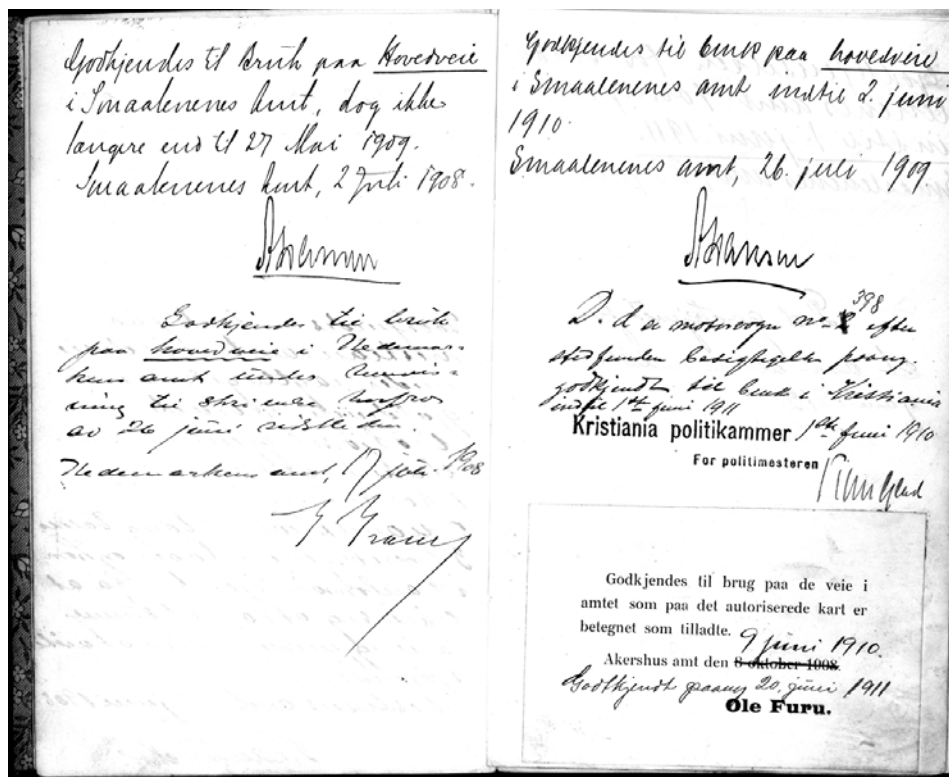 Godkjendes til Bruk paa Hovedveie
i Smaalenenes Amt, dog ikke
længere end til 27 Mai 1909.
Smaalenenes Amt, 2 Juli 1908.
Godkjendes til bruk
paa hovedveie i Hedemar-
kens amt under
ning til
av 26 juni
Hedemarkens amt, 17 1908
Godkjendes til bruk paa hovedveie
i Smaalenenes amt indtil 2. juni
1910.
Smaalenenes amt, 26. juli 1909.
398
D. d a motorvogn no. efter
stedfunden besigtigelse paany
godkjendt til bruk i Kristiania
indtil 1ste juni 1911
Kristiania politikammer 1ste juni 1910
For politimesteren
Godkjendes til brug paa de veie i
amtet som paa det autoriserede kart er
betegnet som tilladte.
9 juni 1910.
Akershus amt den 8 oktober 1908.
Godkjendt paany 20. juni 1911
Ole Furu.